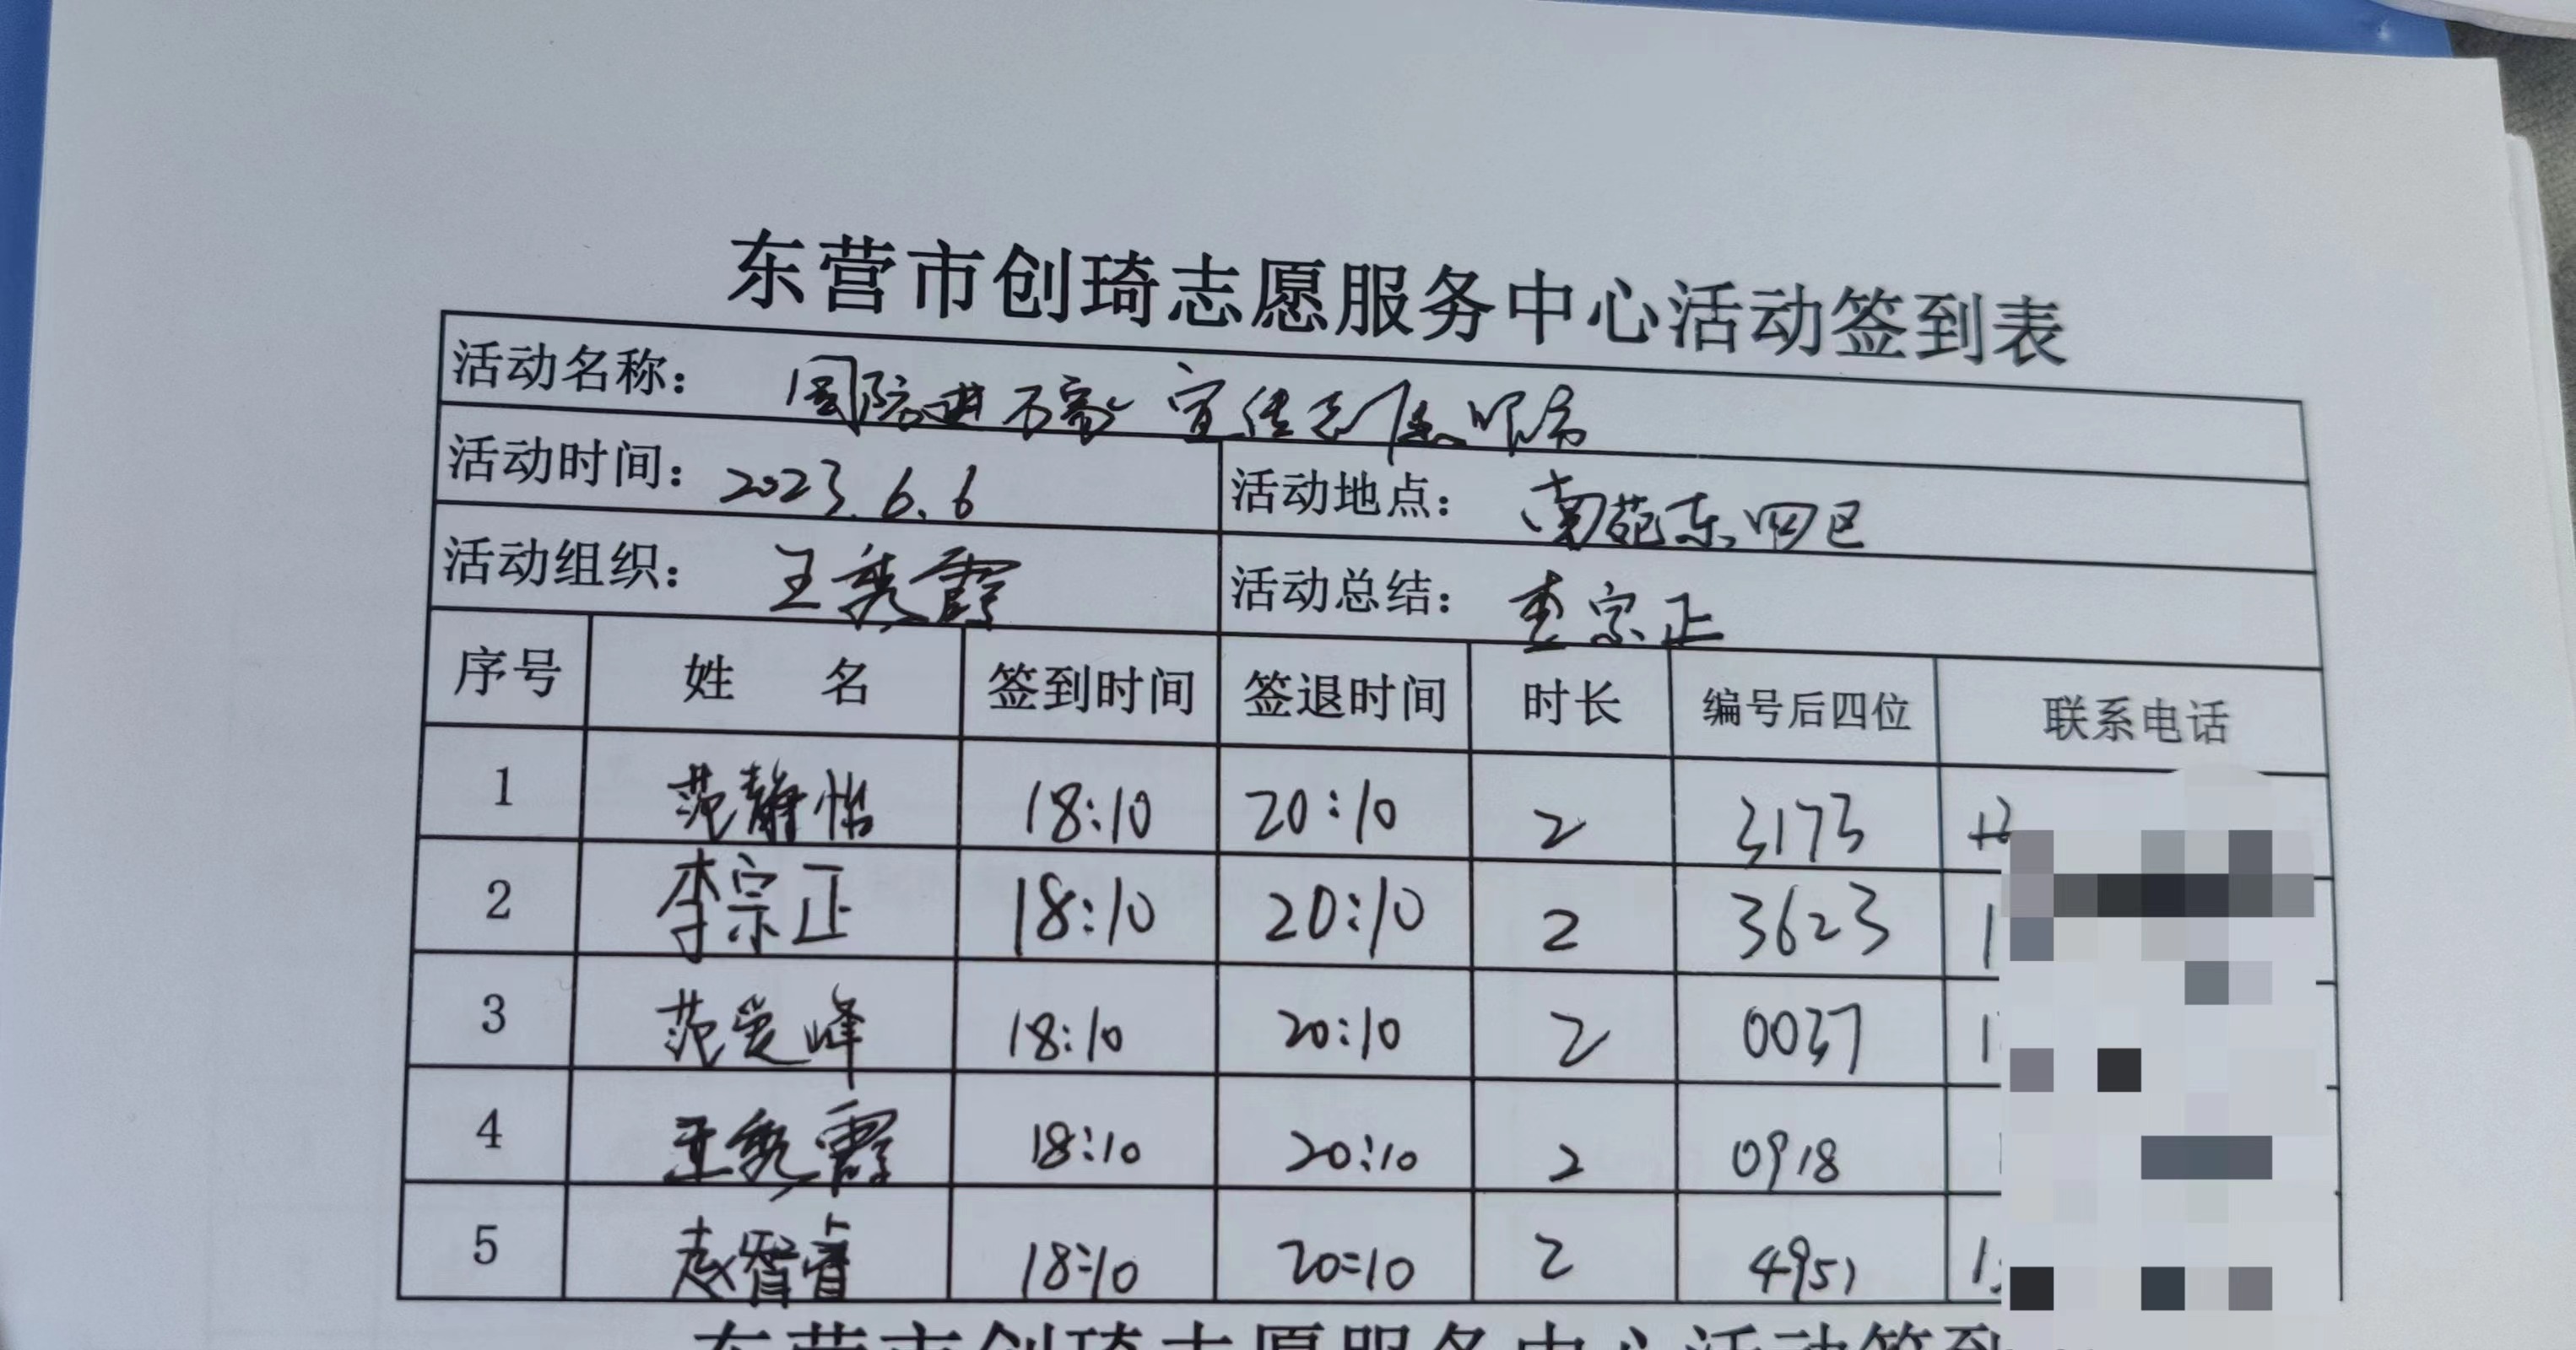 东营市创琦志愿服务中心活动签到表
活动名称： 国防进万家 宣传志愿服务
活动时间：2023.6.6 活动地点： 南苑东四区
活动组织： 王秀霞 活动总结： 李宗正
序号 姓 名 签到时间 签退时间 时长 编号后四位 联系电话
1 范静怡 18:10 20:10 2 3173
2 李宗正 18:10 20:10 2 3623
3 范爱峰 18:10 20:10 2 0037
4 王秀霞 18:10 20:10 2 0918
5 赵智睿 18:10 20:10 2 4951
东营市创琦志愿服务中心活动签到